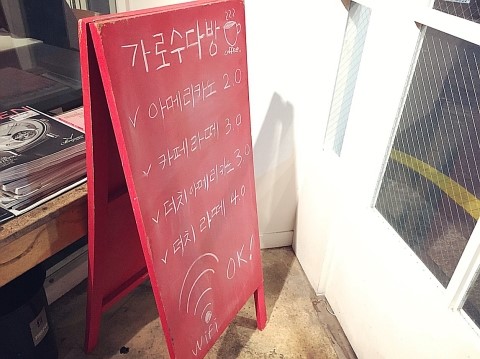 가로수다방
coffee
✓ 아메리카노 2.0
✓ 카페라떼 3.0
✓ 더치아메리카노 3.0
✓ 더치라떼 4.0
OK!
WiFi